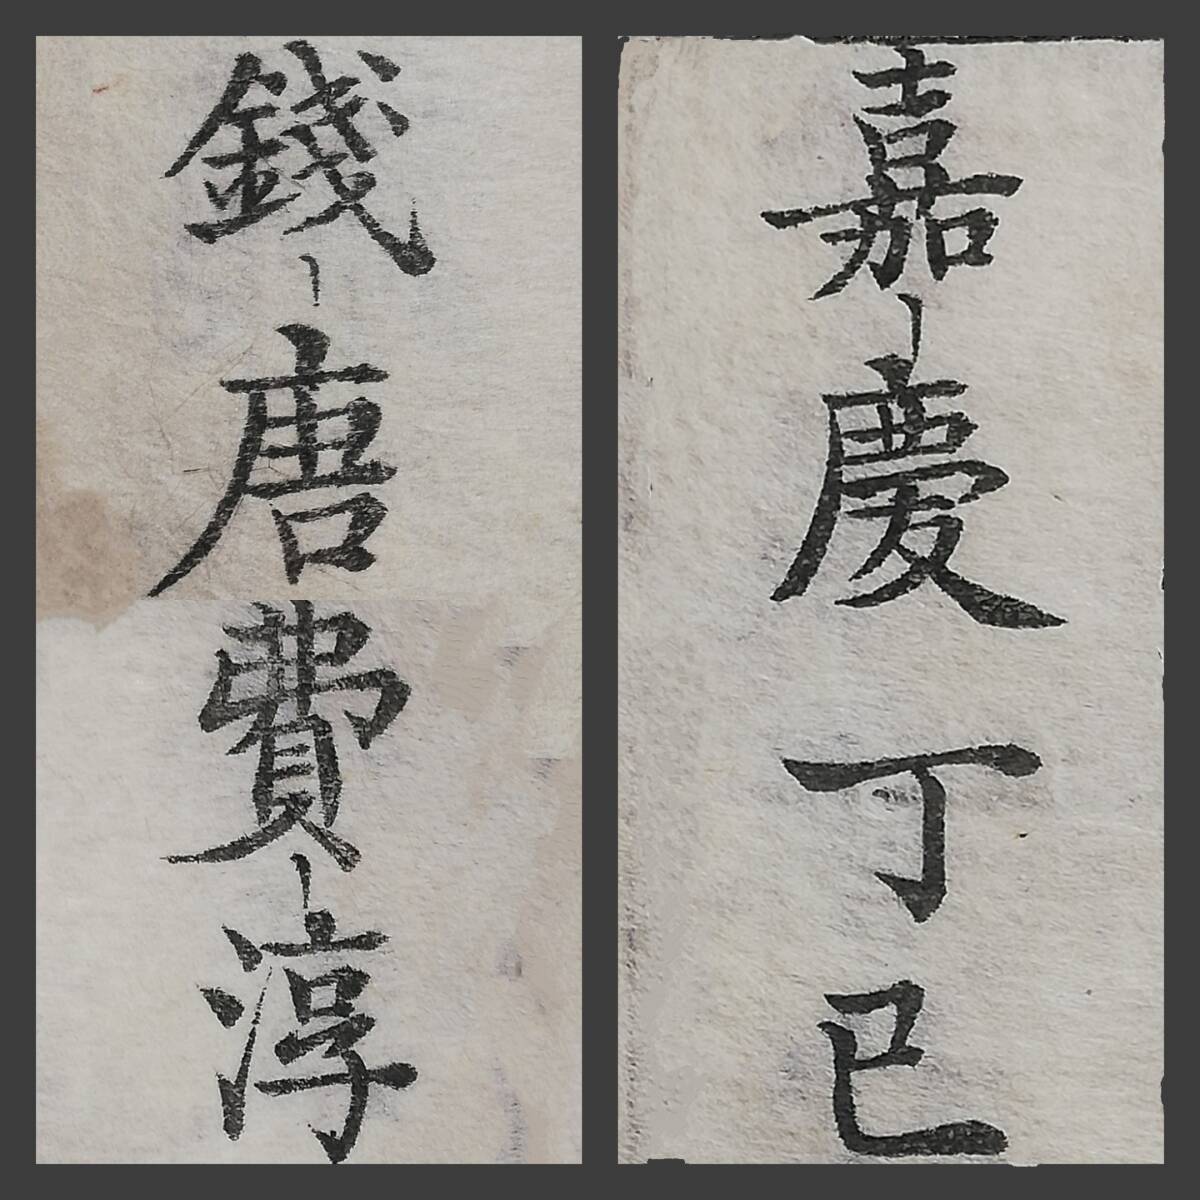 嘉慶丁巳
錢唐費淳